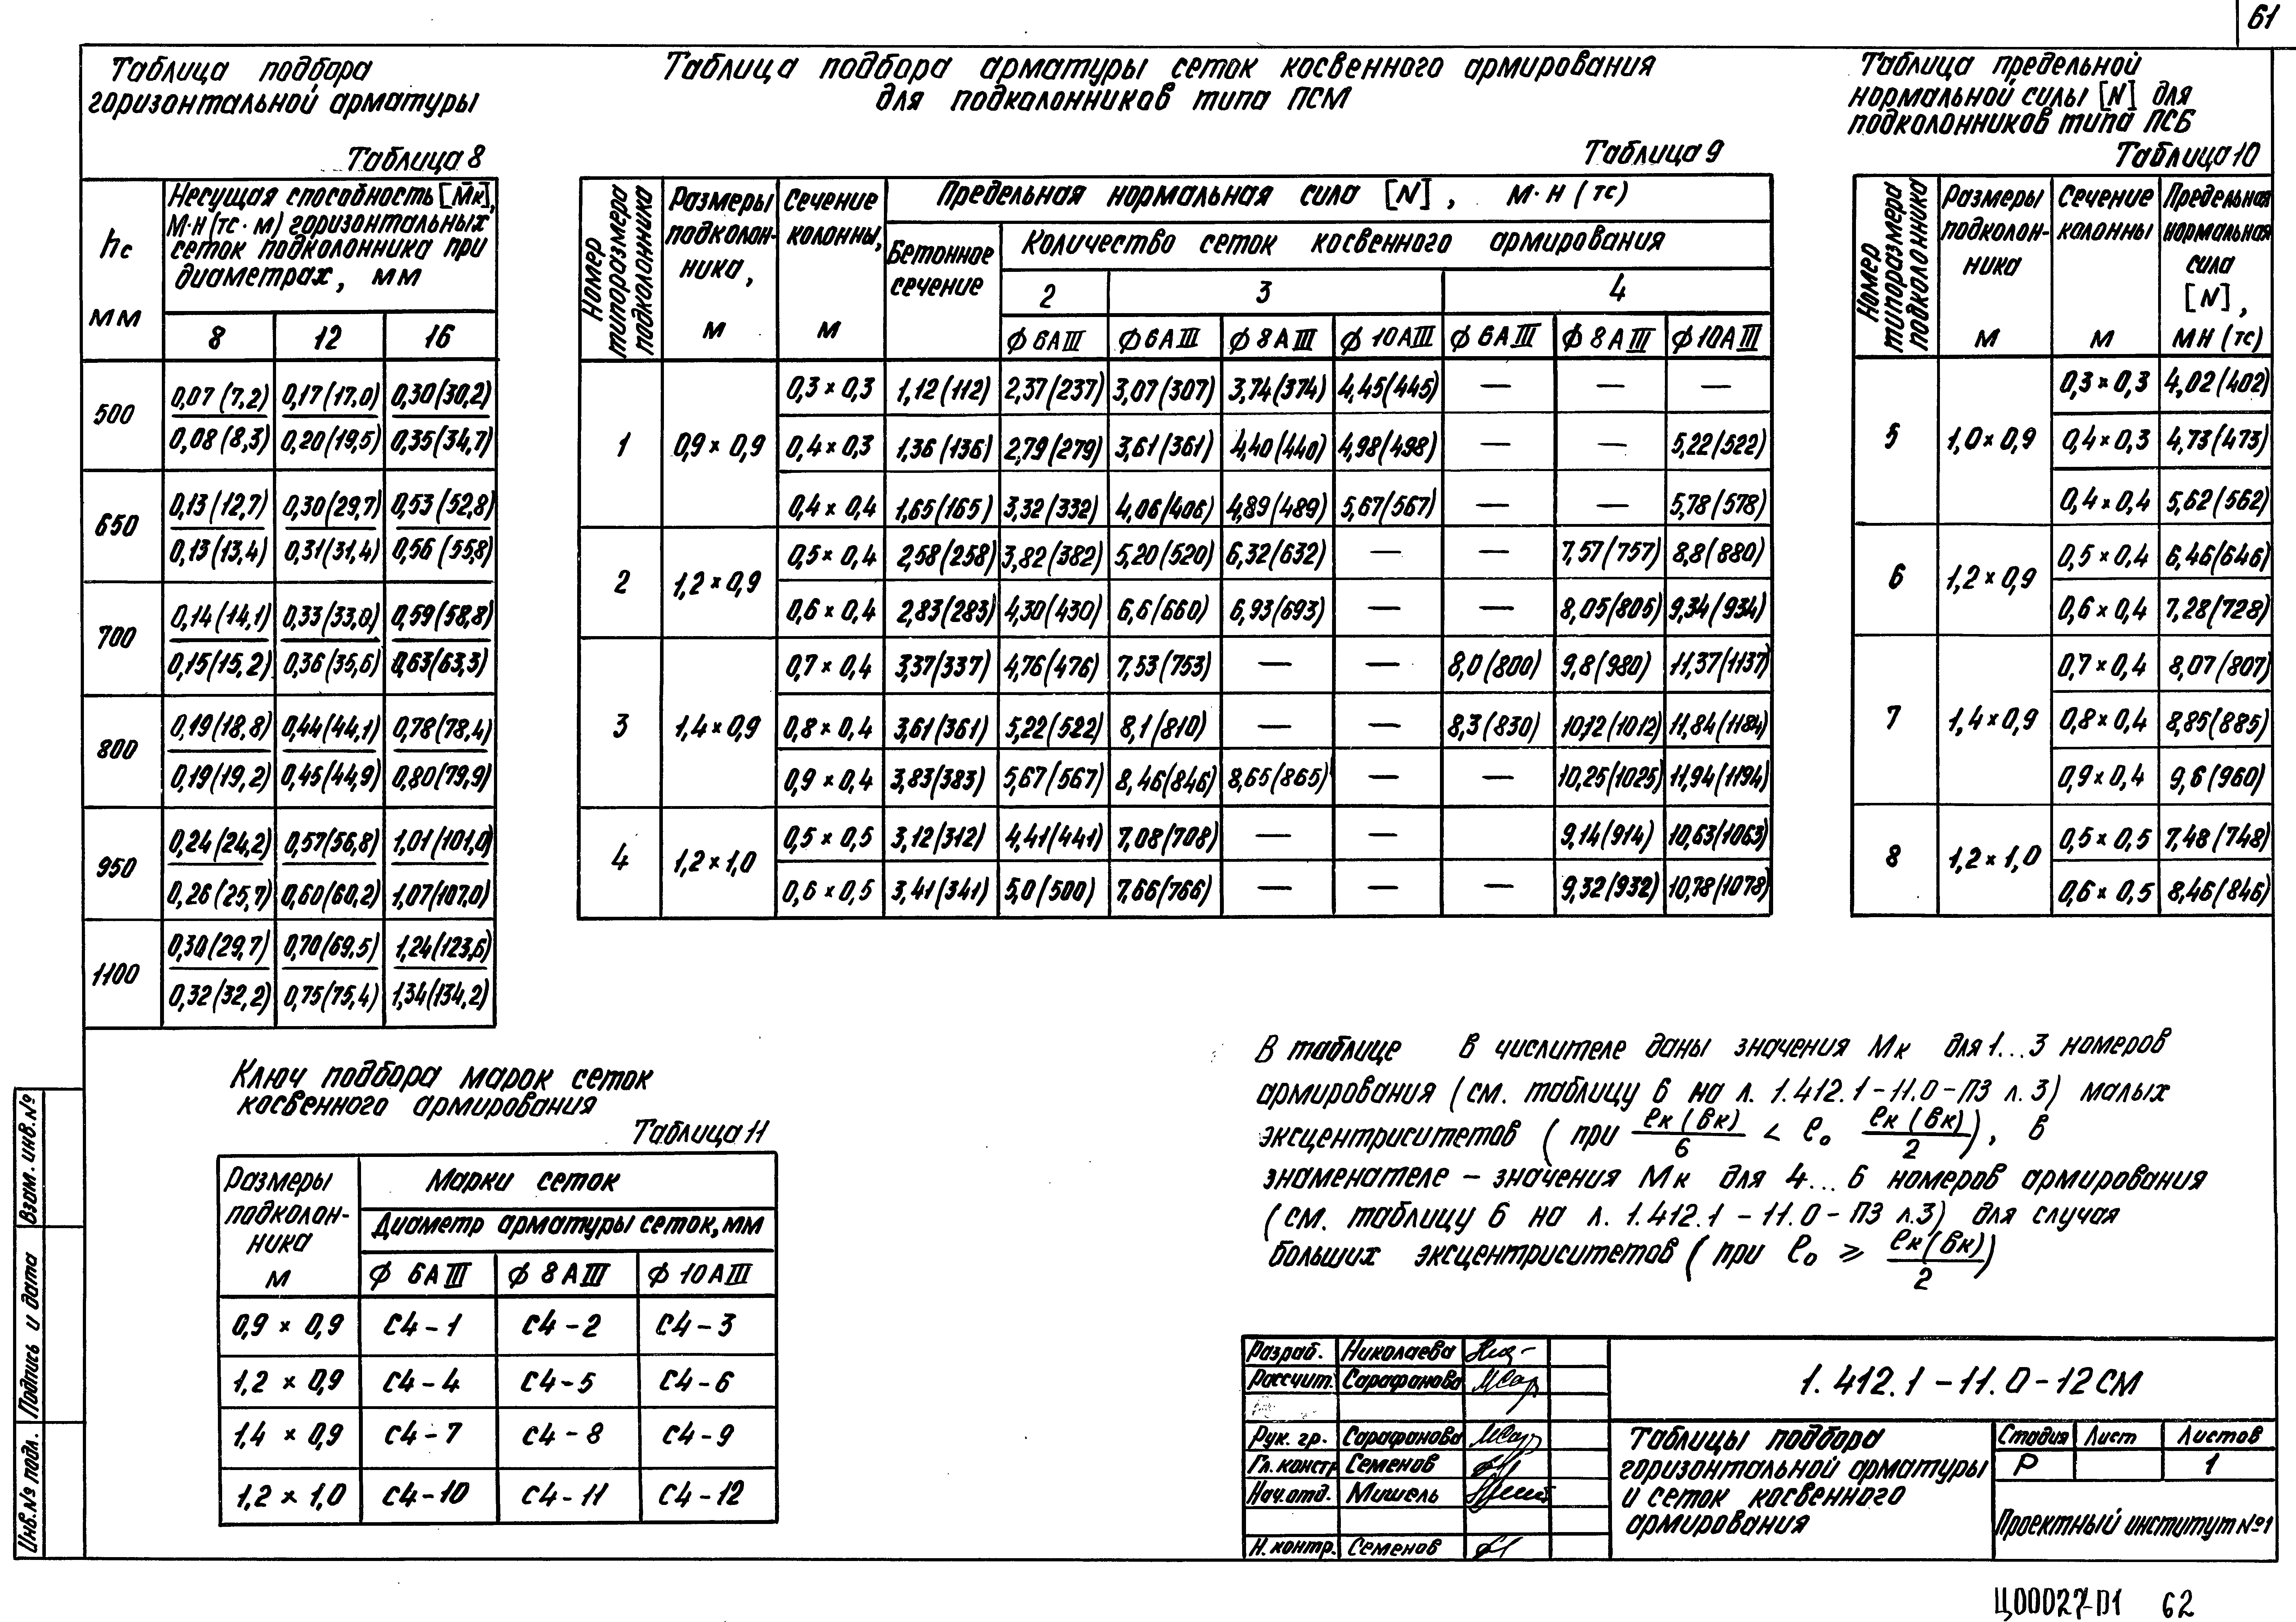 61
Таблица подбора
горизонтальной арматуры
Таблица 8
hc
мм
Несущая способность [Mк],
М·Н (тс·м) горизонтальных
сеток подколонника при
диаметрах, мм
8 12 16
500 0,07 (7,2) 0,17(17,0) 0,30(30,2)
0,08 (8,3) 0,20(19,5) 0,35(34,7)
650 0,13 (12,7) 0,30(29,7) 0,53 (52,8)
0,13 (13,4) 0,31(31,4) 0,56 (55,8)
700 0,14 (14,1) 0,33(33,0) 0,59(58,8)
0,15(15,2) 0,36(35,6) 0,63(63,3)
800 0,19(18,8) 0,44(44,1) 0,78(78,4)
0,19(19,2) 0,45(44,9) 0,80(79,9)
950 0,24(24,2) 0,57(56,8) 1,01(101,0)
0,26(25,7) 0,60(60,2) 1,07(107,0)
1100 0,30(29,7) 0,70(69,5) 1,24(123,6)
0,32(32,2) 0,75(75,4) 1,34(134,2)
Таблица подбора арматуры сеток косвенного армирования
для подколонников типа ПСМ
Таблица 9
Номер
типоразмера
подколонника
Размеры
подколон-
ника,
м
Сечение
колонны,
м
Предельная нормальная сила [N], М·Н (тс)
Бетонное
сечение
Количество сеток косвенного армирования
2 3 4
ϕ 6АIII ϕ 6АIII ϕ 8АIII ϕ 10АIII ϕ 6АIII ϕ 8АIII ϕ 10АIII
1 0,9 × 0,9 0,3 × 0,3 1,12(112) 2,37(237) 3,07(307) 3,74(374) 4,45(445) — — —
0,4 × 0,3 1,36(136) 2,79(279) 3,61(361) 4,40(440) 4,98(498) — — 5,22(522)
0,4 × 0,4 1,65(165) 3,32(332) 4,06(406) 4,89(489) 5,67(567) — — 5,78(578)
2 1,2 × 0,9 0,5 × 0,4 2,58(258) 3,82(382) 5,20(520) 6,32(632) — — 7,57(757) 8,8(880)
0,6 × 0,4 2,83(283) 4,30(430) 6,6(660) 6,93(693) — — 8,05(805) 9,34(934)
3 1,4 × 0,9 0,7 × 0,4 3,37(337) 4,76(476) 7,53(753) — — 8,0(800) 9,8(980) 11,37(1137)
0,8 × 0,4 3,61(361) 5,22(522) 8,1(810) — — 8,3(830) 10,12(1012) 11,84(1184)
0,9 × 0,4 3,83(383) 5,67(567) 8,46(846) 8,65(865) — — 10,25(1025) 11,94(1194)
4 1,2 × 1,0 0,5 × 0,5 3,12(312) 4,41(441) 7,08(708) — — 9,14(914) 10,63(1063)
0,6 × 0,5 3,41(341) 5,0(500) 7,66(766) — — — 9,32(932) 10,78(1078)
Таблица предельной
нормальной силы [N] для
подколонников типа ПСБ
Таблица 10
Номер
типоразмера
подколонника
Размеры
подколон-
ника
м
Сечение
колонны
м
Предельная
нормальная
сила
[N],
МН (тс)
5 1,0 × 0,9 0,3 × 0,3 4,02(402)
0,4 × 0,3 4,73(473)
0,4 × 0,4 5,62(562)
6 1,2 × 0,9 0,5 × 0,4 6,46(646)
0,6 × 0,4 7,28(728)
7 1,4 × 0,9 0,7 × 0,4 8,07(807)
0,8 × 0,4 8,85(885)
0,9 × 0,4 9,6(960)
8 1,2 × 1,0 0,5 × 0,5 7,48(748)
0,6 × 0,5 8,46(846)
Ключ подбора марок сеток
косвенного армирования
Таблица 11
Размеры
подколон-
ника
м
Марки сеток
Диаметр арматуры сеток, мм
ϕ 6АIII ϕ 8АIII ϕ 10АIII
0,9 × 0,9 С4-1 С4-2 С4-3
1,2 × 0,9 С4-4 С4-5 С4-6
1,4 × 0,9 С4-7 С4-8 С4-9
1,2 × 1,0 С4-10 С4-11 С4-12
В таблице в числителе даны значения Мк для 1...3 номеров
армирования (см. таблицу 6 на л. 1.412.1-11.0-ПЗ л. 3) малых
эксцентриситетов (при ℓк(вк)/6 < ℓо ℓк(вк)/2), в
знаменателе – значения Мк для 4...6 номеров армирования
(см. таблицу 6 на л. 1.412.1-11.0-ПЗ л.3) для случая
больших эксцентриситетов (при ℓо ⩾ ℓк(вк)/2)
Разраб. Николаева
Рассчит. Сарафанова
Рук. гр. Сарафанова
Гл. констр Семенов
Нач. отд. Мишель
Н. контр. Семенов
1.412.1-11.0-12СМ
Таблицы подбора
горизонтальной арматуры
и сеток косвенного
армирования
Стадия Лист Листов
Р 1
Проектный институт №1
Взам. инв. №
Подпись и дата
Инв. № подл.
Ц00027-01 62